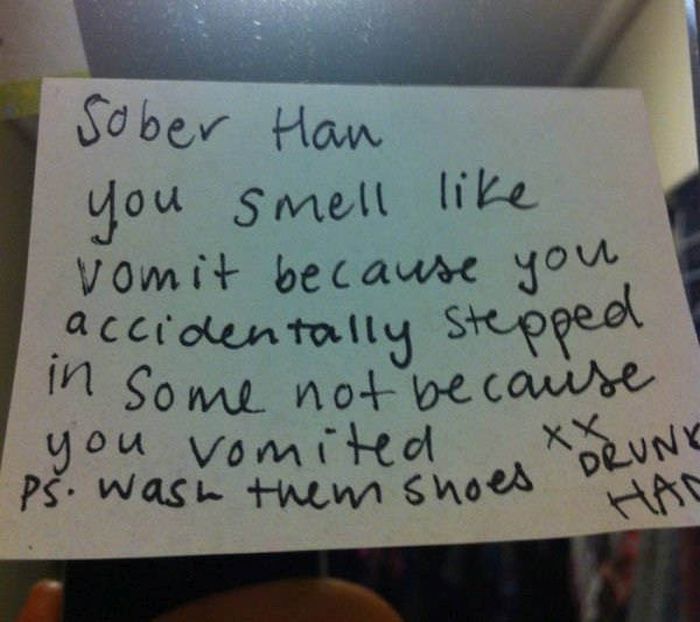 Sober Han
you smell like
vomit because you
accidentally stepped
in some not because
you vomited
PS. wash them shoes
xx DRUNK
HAN